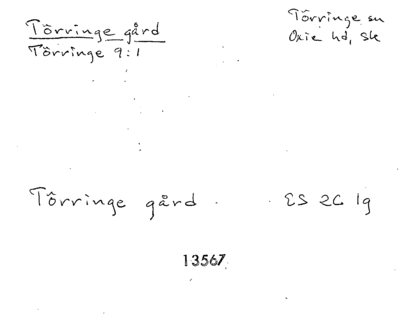 Törringe gård
Törringe 9:1
Törringe sn
Oxie hd, Sk
Törringe gård
ES 2C 1g
13567